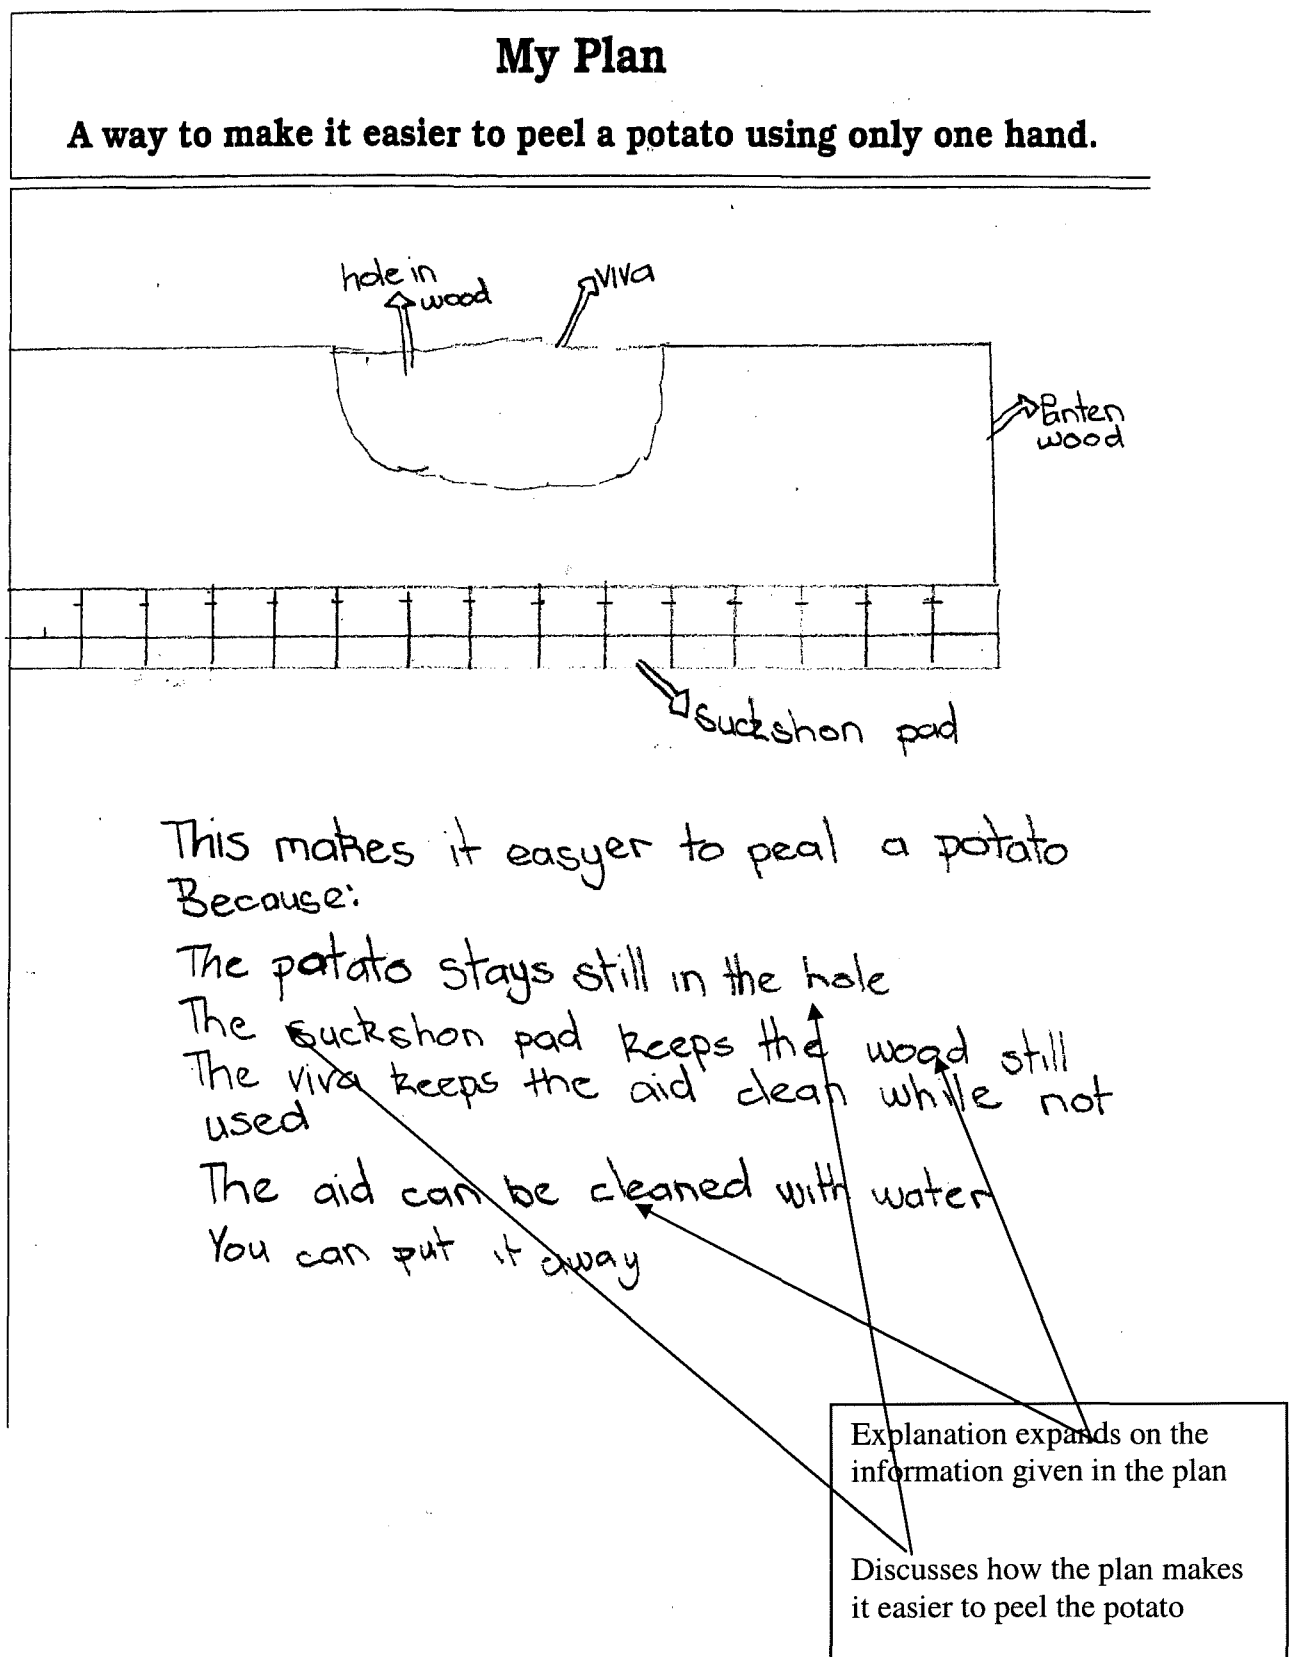 My Plan
A way to make it easier to peel a potato using only one hand.
hole in
wood
viva
wood
suckshon pad
This makes it easyer to peal a potato
Because:
The potato stays still in the hole
The suckshon pad keeps the wood still
The viva keeps the aid clean while not
used
The aid can be cleaned with water
You can put it away
Explanation expands on the
information given in the plan
Discusses how the plan makes
it easier to peel the potato